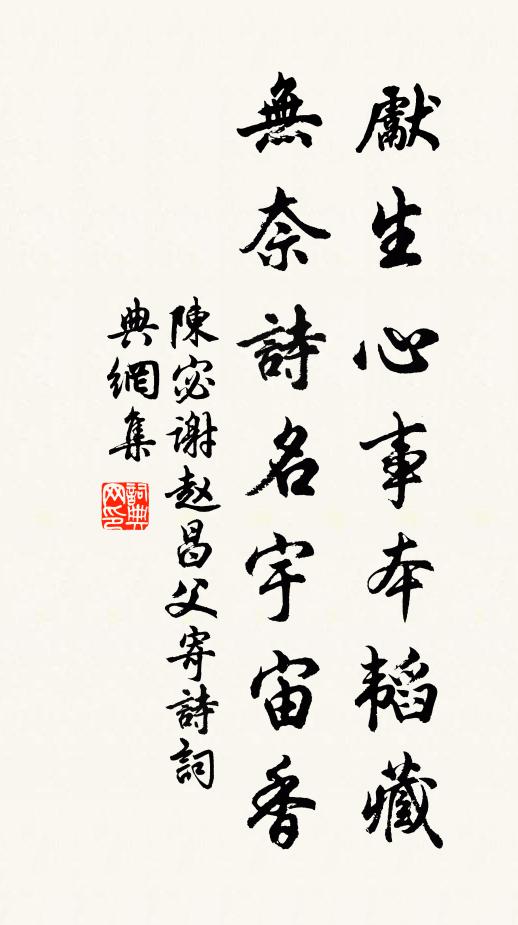 獻生心事本韜藏
無奈詩名宇宙香
陳宓谢赵昌父寄詩詞
典網集
詞典网印